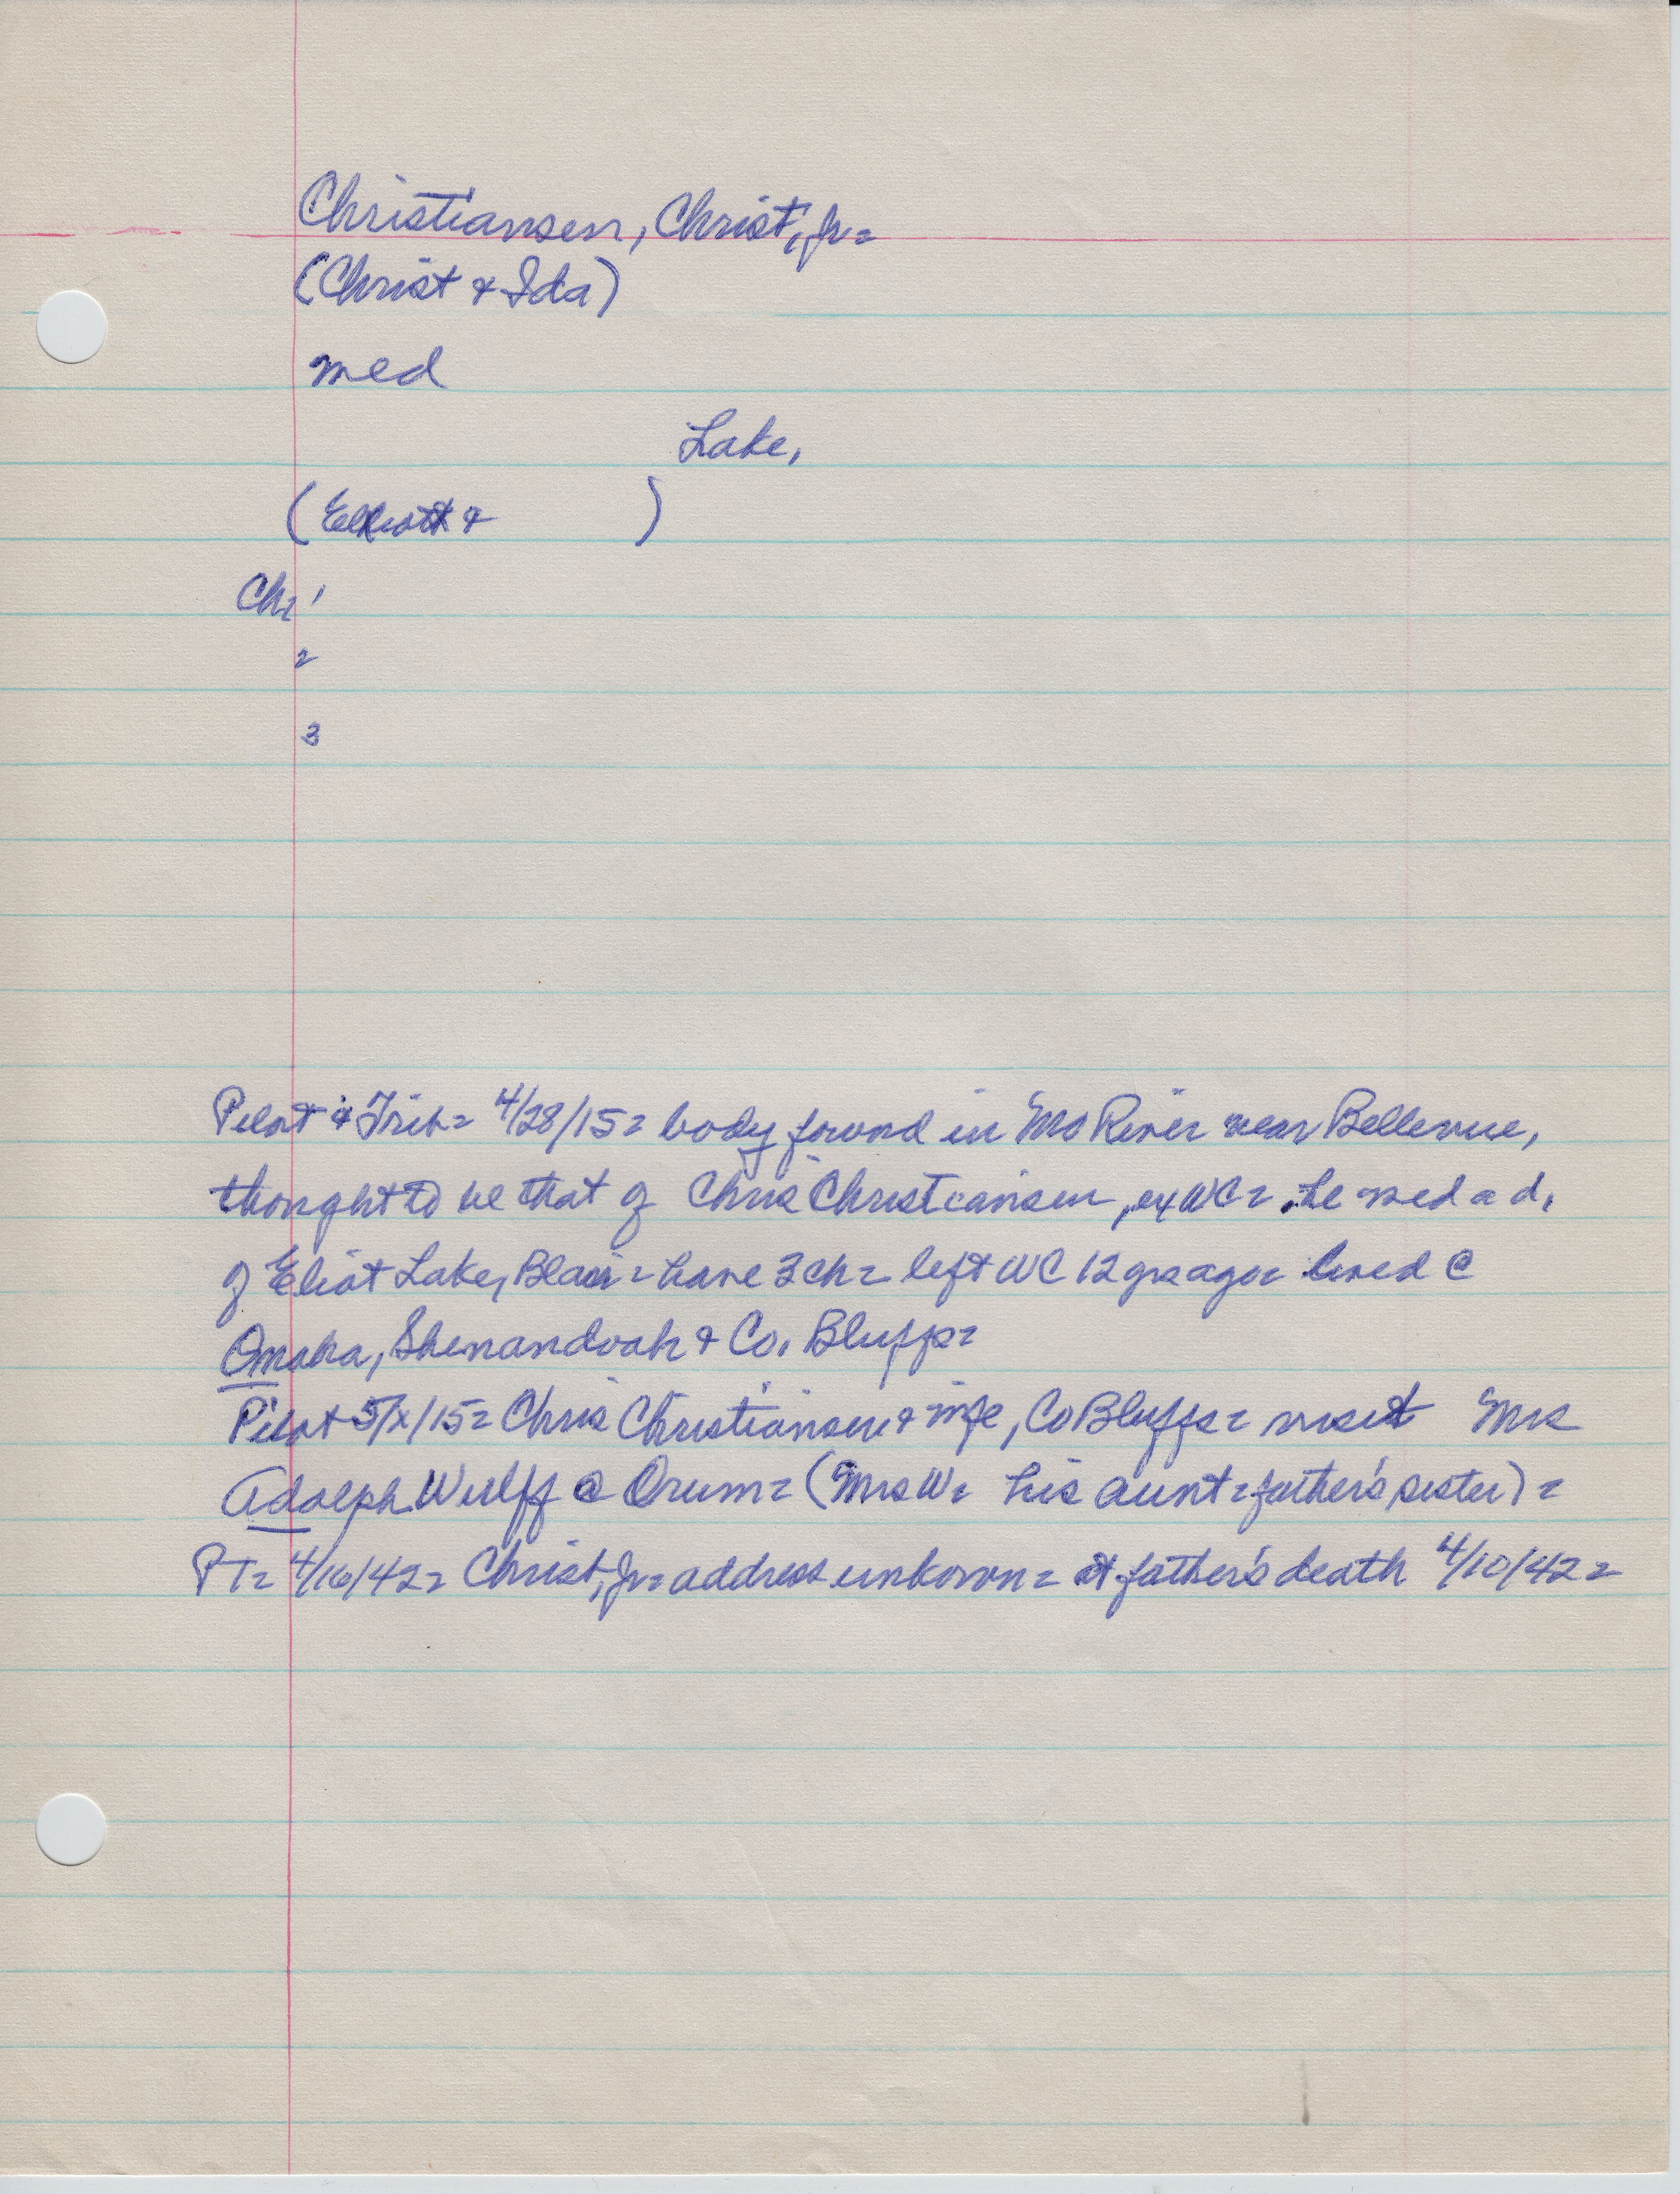 Christiansen, Christ, Jr=
(Christ & Ida)
med
Lake,
(Elliott & )
Ch= 1
2
3
Pilot & Trib= 4/28/15= body found in Mo River near Bellevue,
thought to be that of Chris Christiansen, ex WC= he med a d.
of Eliot Lake, Blair= have 3 ch= left WC 12 yrs ago= lived @
Omaha, Shenandoah & Co. Bluffs=
Pilot 5/x/15= Chris Christiansen & wife, Co Bluffs= visit Mrs
Adolph Wulff @ Orum= (Mrs W= his aunt= father's sister)=
PT= 4/16/42= Christ, Jr= address unkown= at father's death 4/10/42=